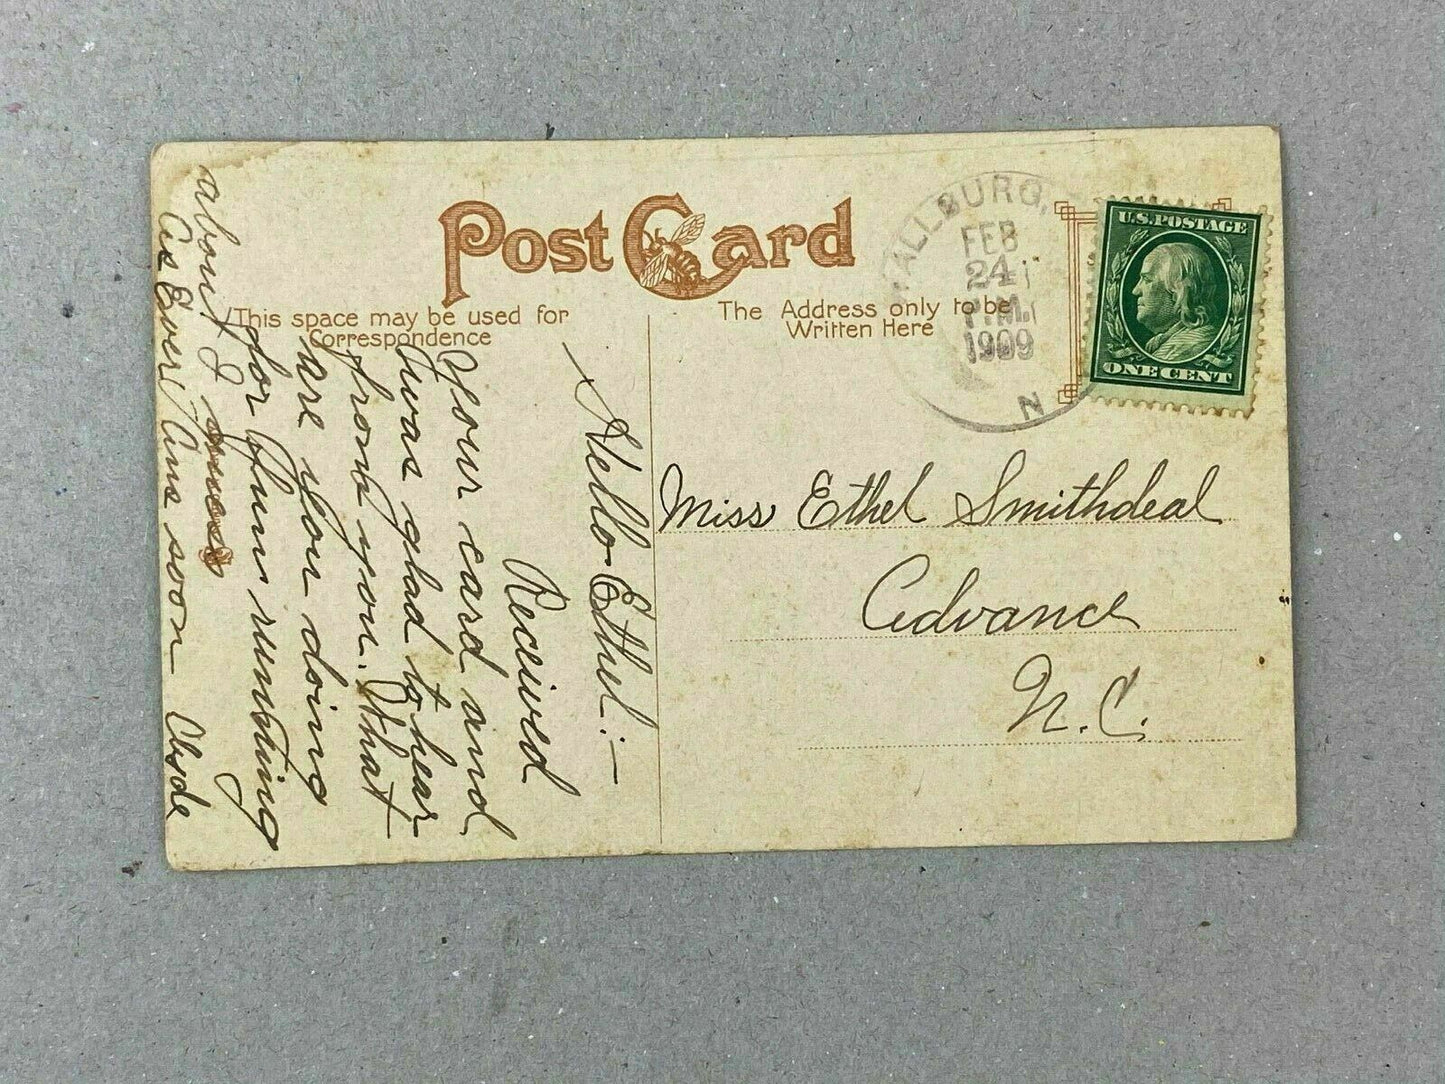 Post Card
This space may be used for
Correspondence
The Address only to be
Written Here
WALLBURG,
FEB
24
P.M.
1909
N
U.S. POSTAGE
ONE CENT
Miss Ethel Smithdeal
Advance
N.C.
Hello Ethel:-
Received
your card and
was glad to hear
from you. What
are you doing
for fun runsting
about
As Ever, Ans soon Clyde